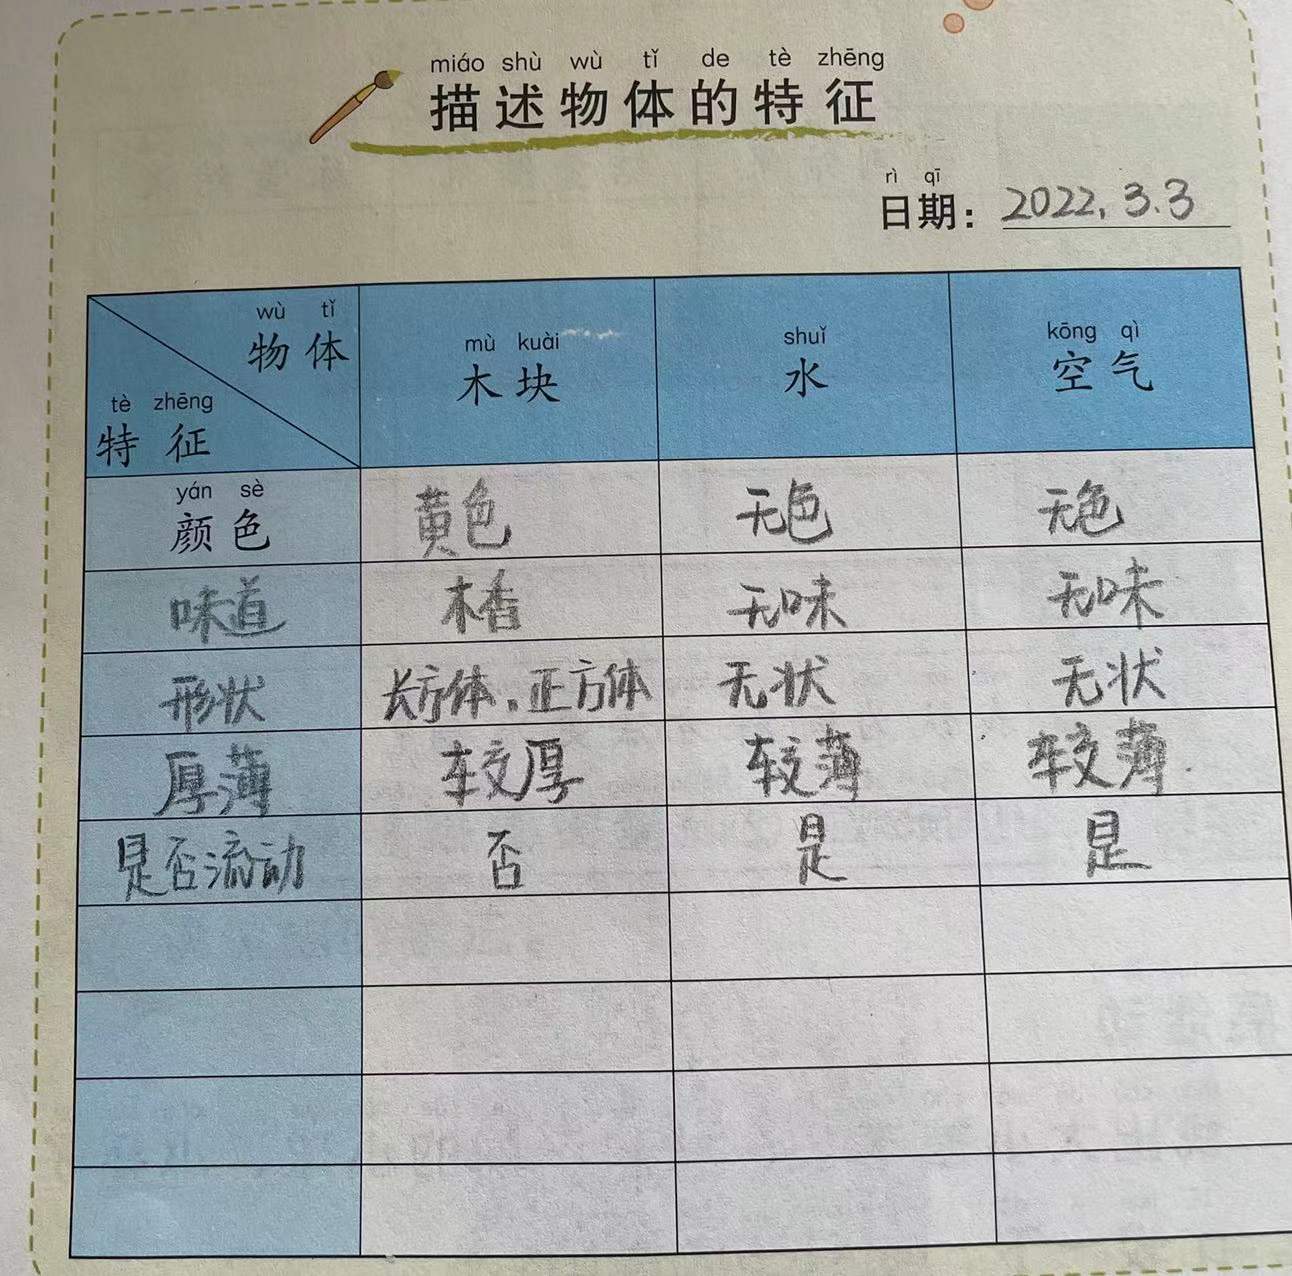 miáo shù wù tǐ de tè zhēng
描述物体的特征
rì qī
日期：2022.3.3
wù tǐ
物体
tè zhēng
特征
mù kuài
木块
shuǐ
水
kōng qì
空气
yán sè
颜色 黄色 无色 无色
味道 木香 无味 无味
形状 长方体、正方体 无状 无状
厚薄 较厚 较薄 较薄
是否流动 否 是 是